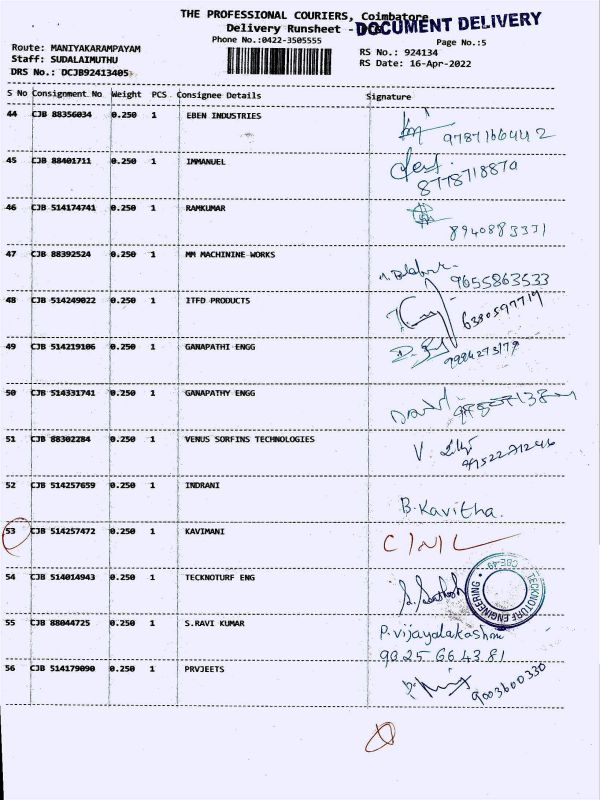 THE PROFESSIONAL COURIERS, Coimbatore
Delivery Runsheet -
DOCUMENT DELIVERY
Phone No.:0422-3505555
Page No.:5
Route: MANIYAKARAMPAYAM
Staff: SUDALAIMUTHU
DRS No.: DCJB92413405
RS No.: 924134
RS Date: 16-Apr-2022
S No Consignment No Weight PCS Consignee Details Signature
44 CJB 88356034 0.250 1 EBEN INDUSTRIES
9787166442
45 CJB 88401711 0.250 1 IMMANUEL
8778718870
46 CJB 514174741 0.250 1 RAMKUMAR
8940883331
47 CJB 88392524 0.250 1 MM MACHININE WORKS
9655863533
48 CJB 514249022 0.250 1 ITFD PRODUCTS
6380597719
49 CJB 514219106 0.250 1 GANAPATHI ENGG
50 CJB 514331741 0.250 1 GANAPATHY ENGG
51 CJB 88302284 0.250 1 VENUS SORFINS TECHNOLOGIES
52 CJB 514257659 0.250 1 INDRANI
B.Kavitha.
53 CJB 514257472 0.250 1 KAVIMANI
54 CJB 514014943 0.250 1 TECKNOTURF ENG
TECKNOTURF ENGINEERING
CBE-49
55 CJB 88044725 0.250 1 S.RAVI KUMAR
P.vijayalakashmi
9025664381
56 CJB 514179090 0.250 1 PRVJEETS
9003600330